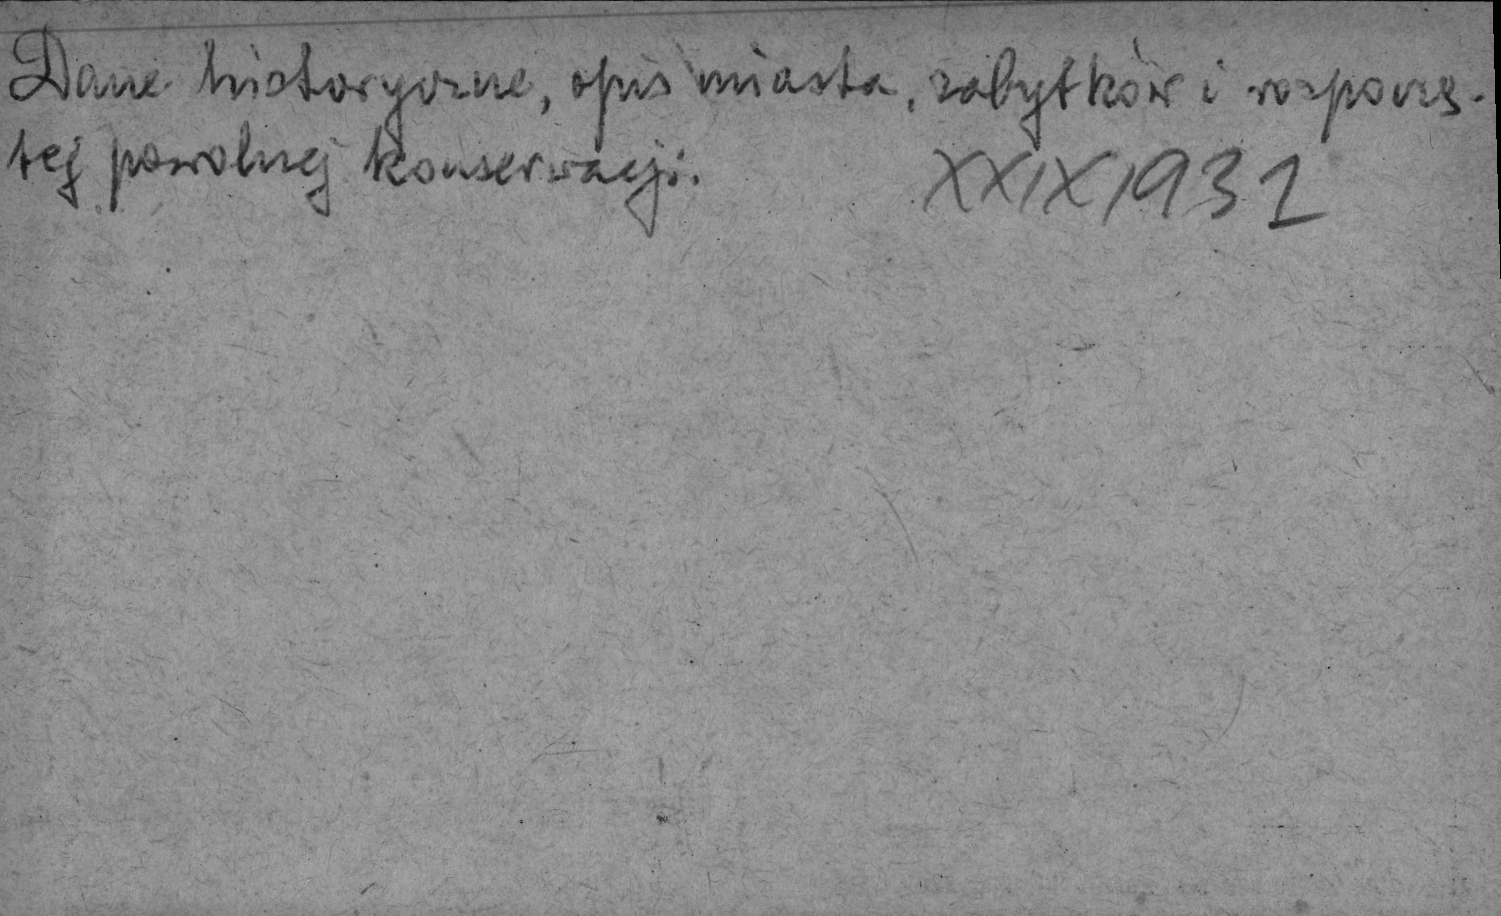 Dane historyczne, opis miasta, zabytków i rozpoczę-
tej powolnej konserwacji. XXIX 1931